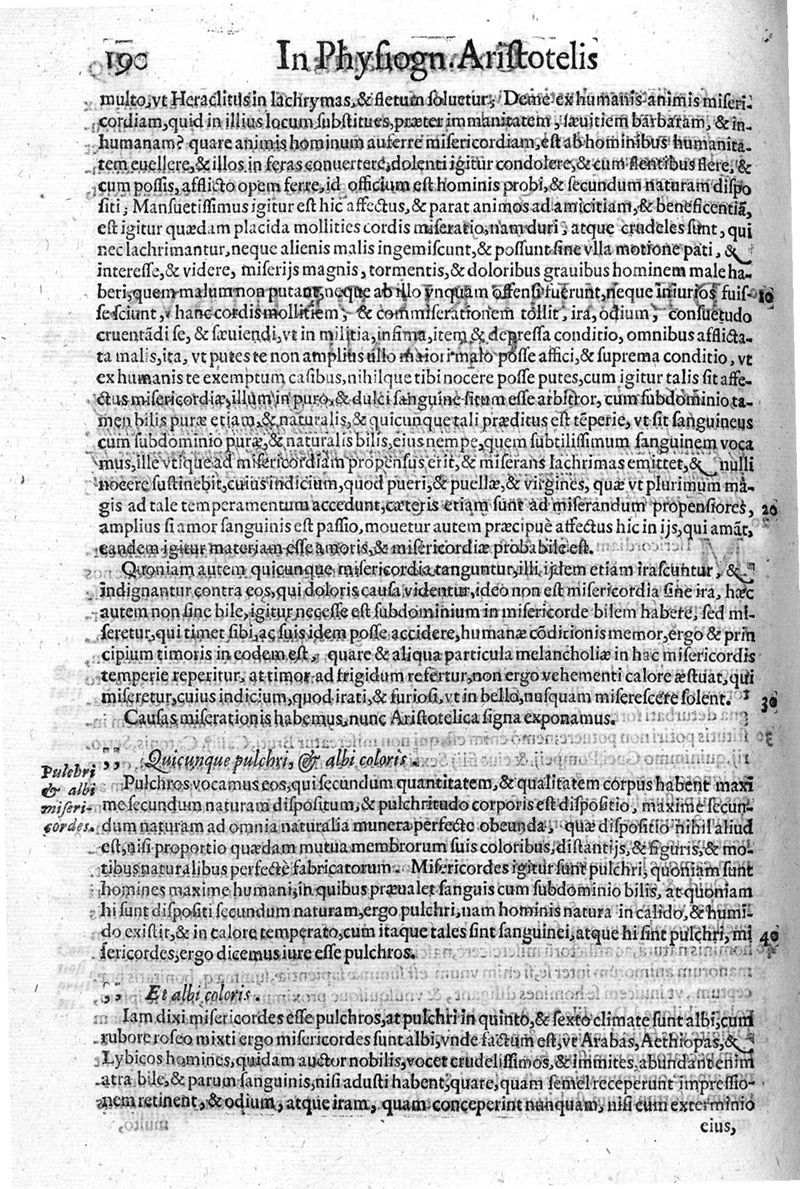 190 In Physiogn. Aristotelis
multo, vt Heraclitus in lachrymas, & fletum soluetur; Deme ex humanis animis miseri-
cordiam, quid in illius locum substitues, præter immanitatem, sæuitiem barbaram, & in-
humanam? quare animis hominum auferre misericordiam, est ab hominibus humanita-
tem euellere, & illos in feras conuertere, dolenti igitur condolere, & cum flentibus flere, &
cum possis, afflicto opem ferre, id officium est hominis probi, & secundum naturam dispo
siti; Mansuetissimus igitur est hic affectus, & parat animos ad amicitiam, & beneficentiã,
est igitur quædam placida mollities cordis miseratio, nam duri, atque crudeles sunt, qui
nec lachrimantur, neque alienis malis ingemiscunt, & possunt sine vlla motione pati, &
interesse, & videre, miserijs magnis, tormentis, & doloribus grauibus hominem male ha-
beri, quem malum non putant, neque ab illo vnquam offensi fuerunt, neque iniurios fuis- 10
se sciunt, hanc cordis mollitiem, & commiserationem tollit, ira, odium, consuetudo
cruentãdi se, & sæuiendi, vt in militia, infima, item & depressa conditio, omnibus afflicta-
ta malis, ita, vt putes te non amplius vllo maiori malo posse affici, & suprema conditio, vt
ex humanis te exemptum casibus, nihilque tibi nocere posse putes, cum igitur talis sit affe-
ctus misericordiæ, illum in puro, & dulci sanguine situm esse arbitror, cum subdominio ta-
men bilis puræ etiam, & naturalis, & quicunque tali præditus est tẽperie, vt sit sanguineus
cum subdominio puræ, & naturalis bilis, eius nempe, quem subtilissimum sanguinem voca
mus, ille vtique ad misericordiam propensus erit, & miserans lachrimas emittet, & nulli
nocere sustinebit, cuius indicium, quod pueri, & puellæ, & virgines, quæ vt plurimum ma-
gis ad tale temperamentum accedunt, cæteris etiam sunt ad miserandum propensiores, 20
amplius si amor sanguinis est passio, mouetur autem præcipuè affectus hic in ijs, qui amãt,
eandem igitur materiam esse amoris, & misericordiæ probabile est.
Quoniam autem quicunque misericordia tanguntur, illi, ijdem etiam irascuntur, &
indignantur contra eos, qui doloris causa videntur, ideo non est misericordia sine ira, hæc
autem non sine bile, igitur necesse est subdominium in misericorde bilem habere, sed mi-
seretur, qui timet sibi, ac suis idem posse accidere, humanæ cõditionis memor, ergo & prin
cipium timoris in eodem est, quare & aliqua particula melancholiæ in hac misericordis
temperie reperitur, at timor ad frigidum refertur, non ergo vehementi calore æstuat, qui
miseretur, cuius indicium, quod irati, & furiosi, vt in bello, nusquam miserescere solent. 30
Causas miserationis habemus, nunc Aristotelica signa exponamus.
,, Quicunque pulchri, & albi coloris.
Pulchri
& albi
miseri-
cordes.
Pulchros vocamus eos, qui secundum quantitatem, & qualitatem corpus habent maxi
me secundum naturam dispositum, & pulchritudo corporis est dispositio, maxime secun-
dum naturam ad omnia naturalia munera perfecte obeunda, quæ dispositio nihil aliud
est, nisi proportio quædam mutua membrorum suis coloribus, distantijs, & figuris, & mo-
tibus naturalibus perfectè fabricatorum. Misericordes igitur sunt pulchri, quoniam sunt
homines maxime humani, in quibus præualet sanguis cum subdominio bilis, at quoniam
hi sunt dispositi secundum naturam, ergo pulchri, nam hominis natura in calido, & humi-
do existit, & in calore temperato, cum itaque tales sint sanguinei, atque hi sint pulchri, mi 40
sericordes, ergo dicemus iure esse pulchros.
,, Et albi coloris.
Iam dixi misericordes esse pulchros, at pulchri in quinto, & sexto climate sunt albi, cum
rubore roseo mixti ergo misericordes sunt albi, vnde factum est, vt Arabas, Aethiopas, &
Lybicos homines, quidam auctor nobilis, vocet crudelissimos, & immites, abundant enim
atra bile, & parum sanguinis, nisi adusti habent, quare, quam semel receperunt impressio-
nem retinent, & odium, atque iram, quam conceperint nunquam, nisi cum exterminio
eius,